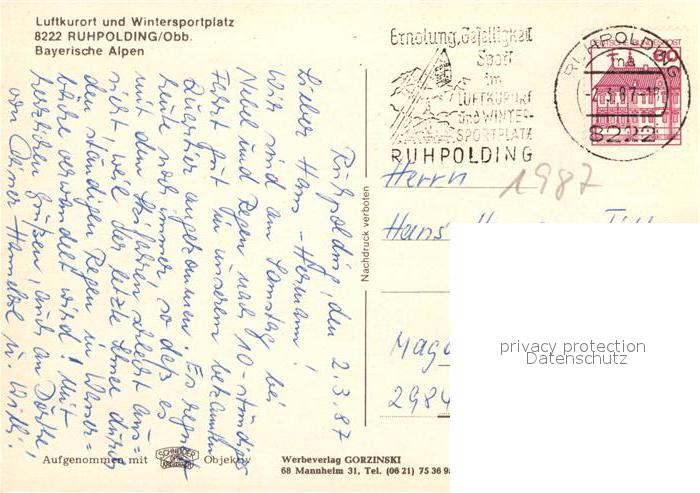 Luftkurort und Wintersportplatz
8222 RUHPOLDING/Obb.
Bayerische Alpen
Erholung, Geselligkeit
Sport
im
LUFTKURORT
und WINTER-
SPORTPLATZ
RUHPOLDING
DEUTSCHE BUNDESPOST
60
RUHPOLDING
-2.3.87-1
8222
1987
Herrn
Hans
2984
Nachdruck verboten
Ruhpolding, den 2.3.87
Lieber Hans-Hermann!
Wir sind am Samstag bei
Nebel und Regen nach 10-stündiger
Fahrt gut in unserem bekannten
Quartier angekommen. Es regnet
heute noch immer, so daß es
mit dem Skifahren schlecht aus=
sieht, weil der letzte Schnee durch
den ständigen Regen in Wasser=
bäche verwandelt wird! Mit
herzlichen Grüßen, auch an Dörte!
von Deiner u. Willi!
Aufgenommen mit SCHNEIDER KREUZNACH Objektiv
Werbeverlag GORZINSKI
68 Mannheim 31, Tel. (06 21) 75 36 9
privacy protection
Datenschutz